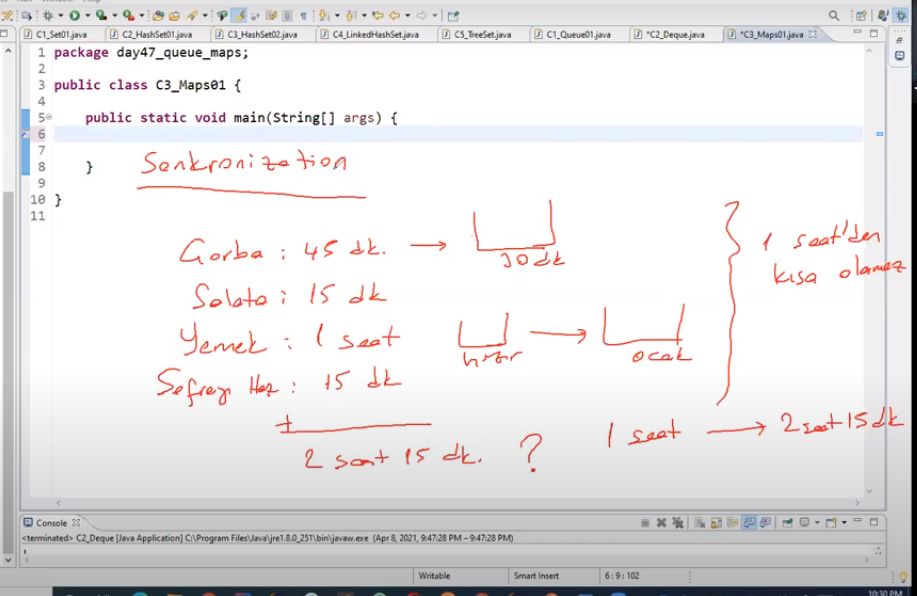 C1_Set01.java C2_HashSet01.java C3_HashSet02.java C4_LinkedHashSet.java C5_TreeSet.java C1_Queue01.java *C2_Deque.java *C3_Maps01.java
1 package day47_queue_maps;
2
3 public class C3_Maps01 {
4
5 public static void main(String[] args) {
6
7
8 }
9
10 }
11
Senkronization
Çorba : 45 dk. → 30 dk
Salata : 15 dk
Yemek : 1 saat → ocak
15 dk
+
2 saat 15 dk. ?
1 saat'den
kısa olamaz
1 saat → 2 saat 15 dk
Console
<terminated> C2_Deque [Java Application] C:\Program Files\Java\jre1.8.0_251\bin\javaw.exe (Apr 8, 2021, 9:47:28 PM – 9:47:28 PM)
Writable Smart Insert 6 : 9 : 102
10:30 PM